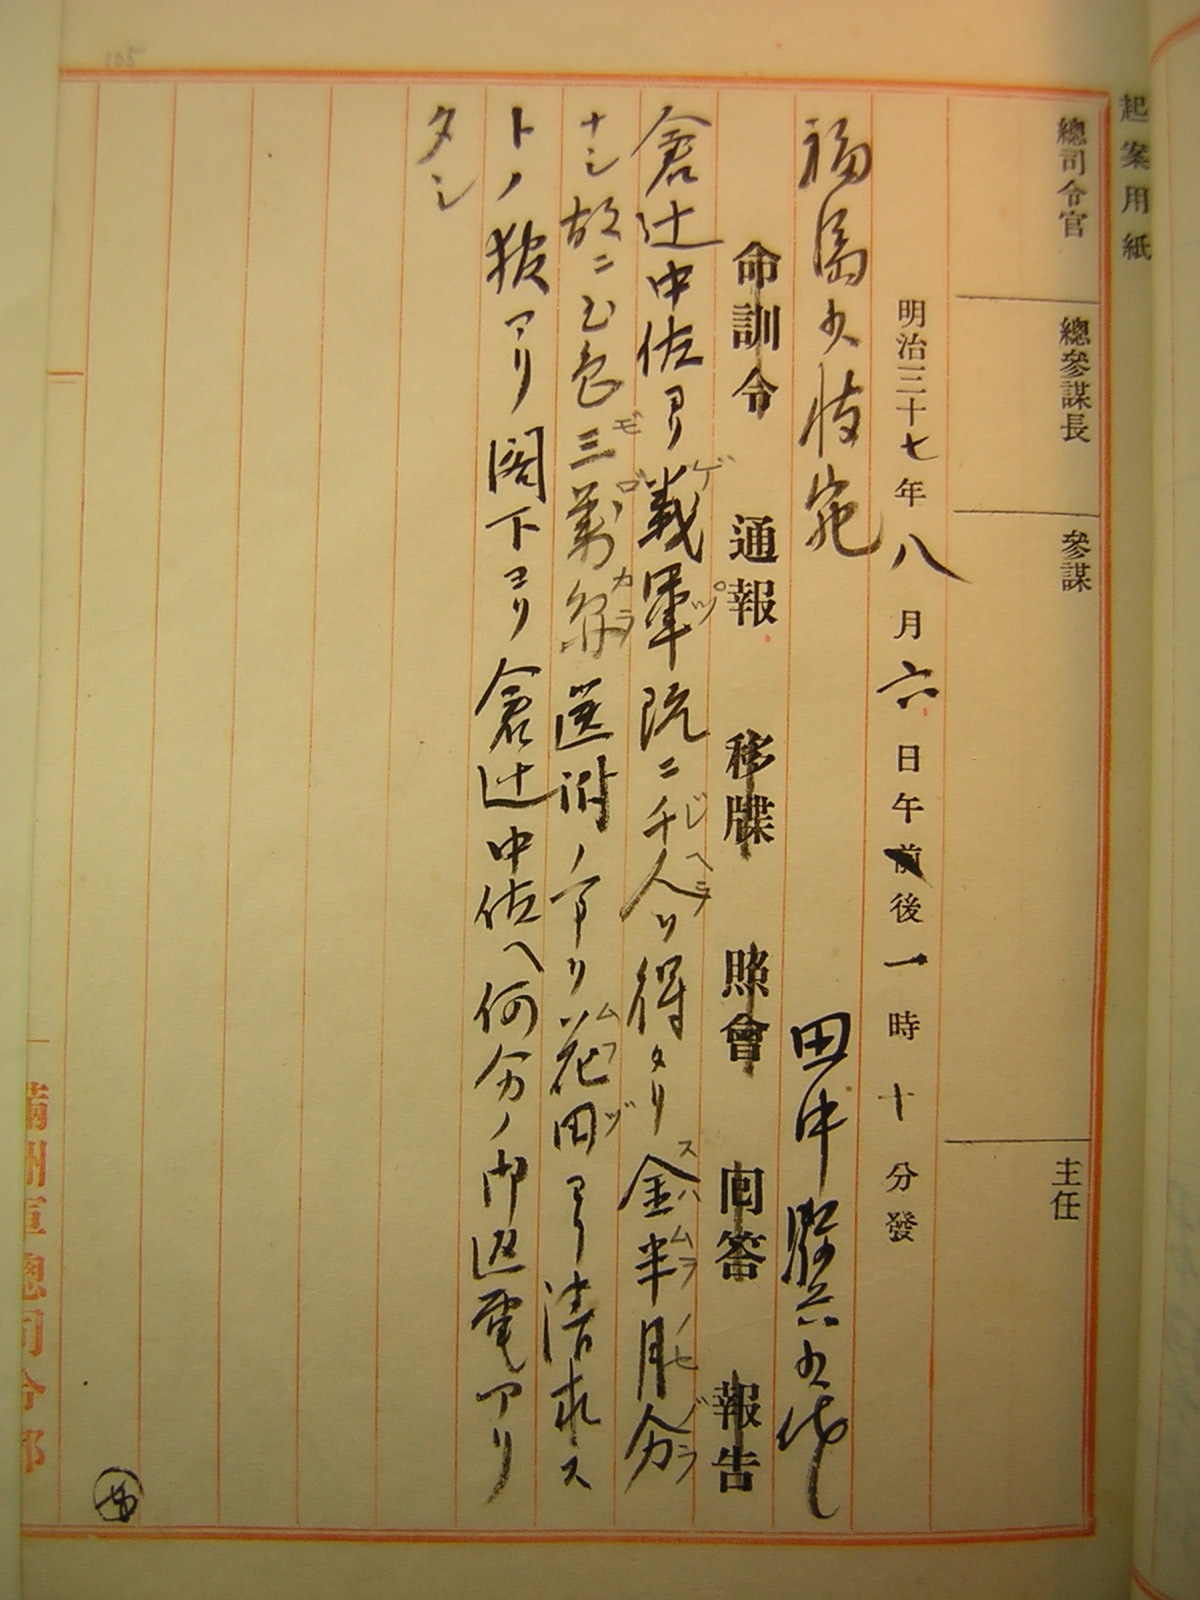 起案用紙
總司令官
總參謀長
參謀
主任
明治三十七年八月六日午前後一時十分發
福島少将宛
田中
命訓令 通報 移牒 照會 回答 報告
倉辻中佐ヨリ義軍既ニ千人ヲ得タリ金半月分
ゲ ヅ ジ ヘラ スハ ムラ ノセ ノラ
ナシ故ニ至急三萬弗送附ノ事ヲ花田ヨリ請求ス
モ ゴ カラ ムフヅ
トノ報アリ閣下ヨリ倉辻中佐ヘ何分ノ御返電アリ
タシ
滿洲軍總司令部